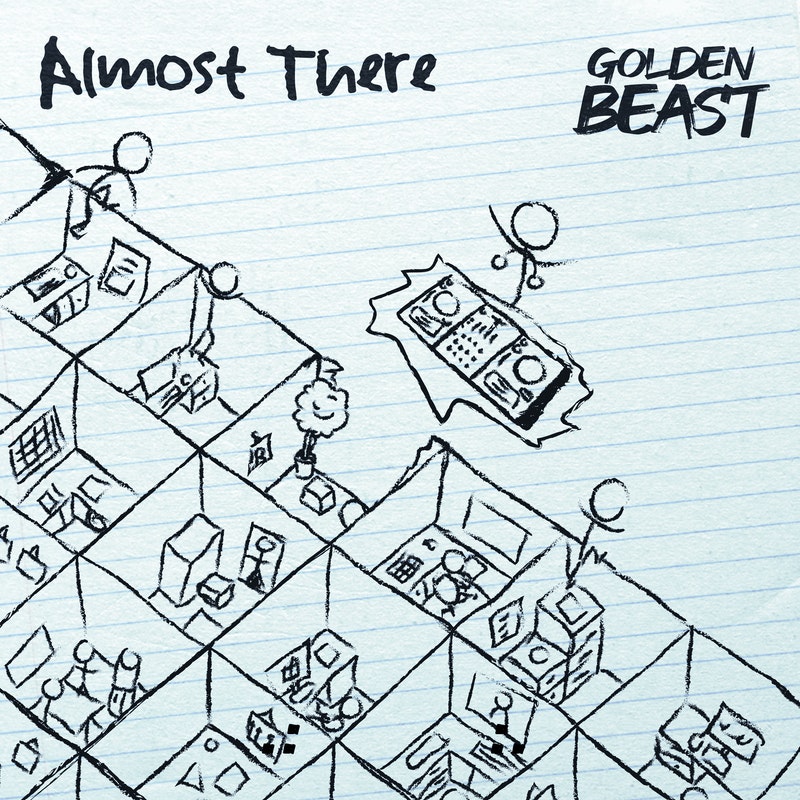 Almost There
GOLDEN
BEAST